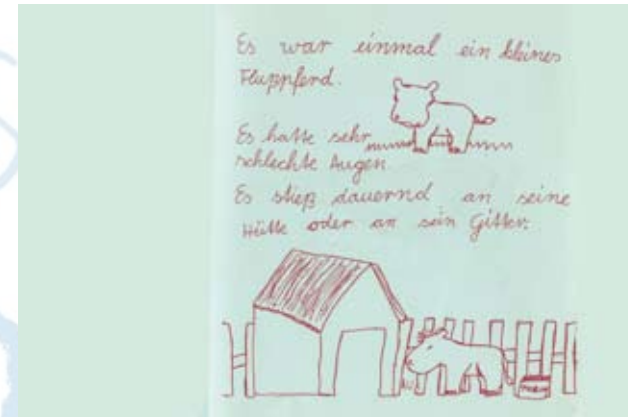 Es war einmal ein kleines
Flußpferd.
Es hatte sehr
schlechte Augen
Es stieß dauernd an seine
Hütte oder an sein Gitter.